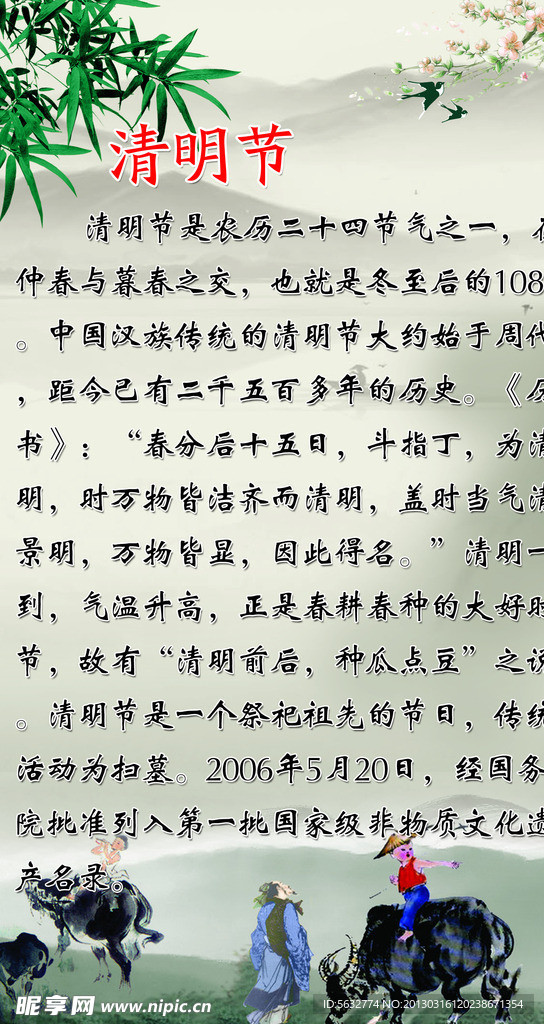 清明节
清明节是农历二十四节气之一，在
仲春与暮春之交，也就是冬至后的108
。中国汉族传统的清明节大约始于周代
，距今已有二千五百多年的历史。《历
书》：“春分后十五日，斗指丁，为清
明，时万物皆洁齐而清明，盖时当气清
景明，万物皆显，因此得名。”清明一
到，气温升高，正是春耕春种的大好时
节，故有“清明前后，种瓜点豆”之说
。清明节是一个祭祀祖先的节日，传统
活动为扫墓。2006年5月20日，经国务
院批准列入第一批国家级非物质文化遗
产名录。
昵享网 www.nipic.cn
ID:5632774 NO:20130316120238671354